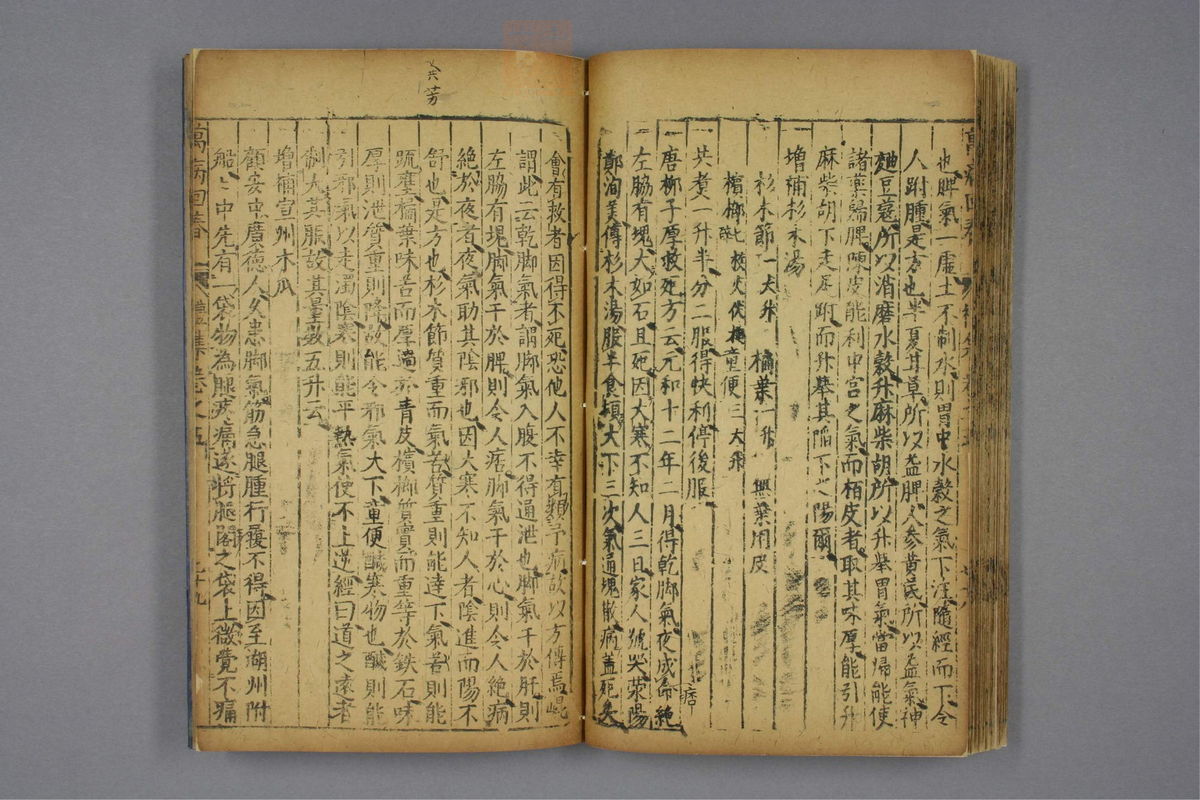 也脾氣一虛土不制水則胃中水穀之氣下注隨經而下令
人跗腫是方也半夏甘草所以益脾人參黃芪所以益氣神
麯豆蔻所以消磨水穀升麻柴胡所以升舉胃氣當歸能使
諸藥歸脾陳皮能利中宮之氣而栢皮者取其味厚能引升
麻柴胡下走足跗而升舉其陷下之陽爾
增補杉木湯
杉木節一大升 橘葉一升 無葉用皮
檳榔七枚 童便三大升
共煑一升半分二服得快利停後服
唐柳子厚救死方云元和十二年二月得乾脚氣夜成痞絕
左脇有塊大如石且死因大寒不知人三日家人號哭滎陽
鄭洵美傳杉木湯服半食頃大下三次氣通塊散病蓋死矣
會有救者因得不死恐他人不幸有類予病故以方傳焉崐
謂此云乾脚氣者謂脚氣入腹不得通泄也脚氣干於肝則
左脇有塊脚氣干於脾則令人痞脚氣干於心則令人絕病
絕於夜者夜氣助其陰邪也因大寒不知人者陰進而陽不
舒也是方也杉木節質重而氣芳質重則能達下氣芳則能
疏壅橘葉味苦而厚過於青皮檳榔質實而重等於鉄石味
厚則泄質重則降故能令邪氣大下童便醎寒物也醎則能
引邪氣以走濁陰寒則能平熱氣使不上逆經曰道之遠者
制大其服故其量數五升云
增補宣州木瓜
顧安中廣德人久患脚氣筋急腿腫行履不得因至湖州附
船船中先有一袋物為腿疼痛遂將腿閣之袋上微覺不痛
萬病回春
卷之五
十九